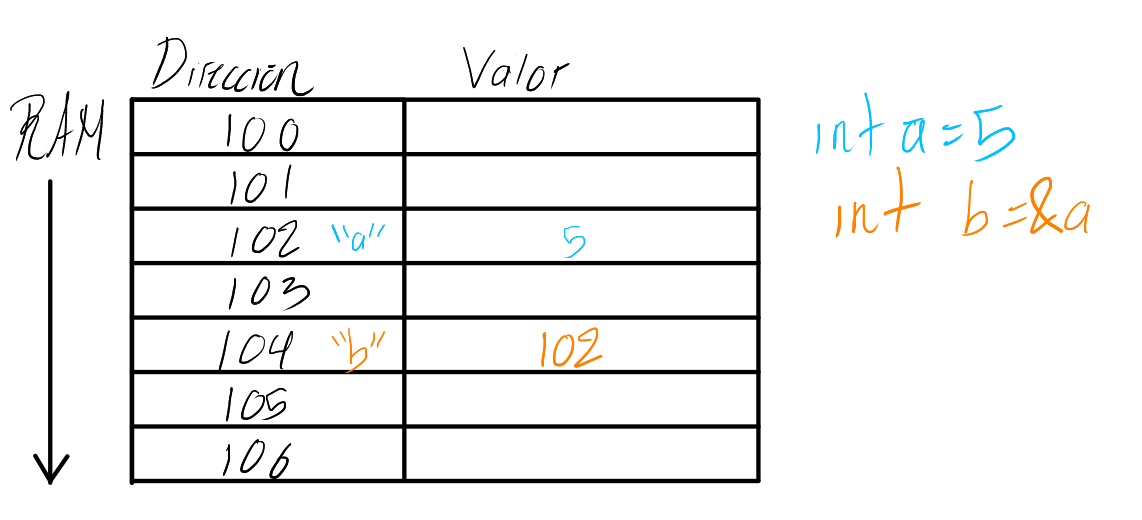 Dirección Valor
RAM
100
101
102 "a" 5
103
104 "b" 102
105
106
int a=5
int b=&a